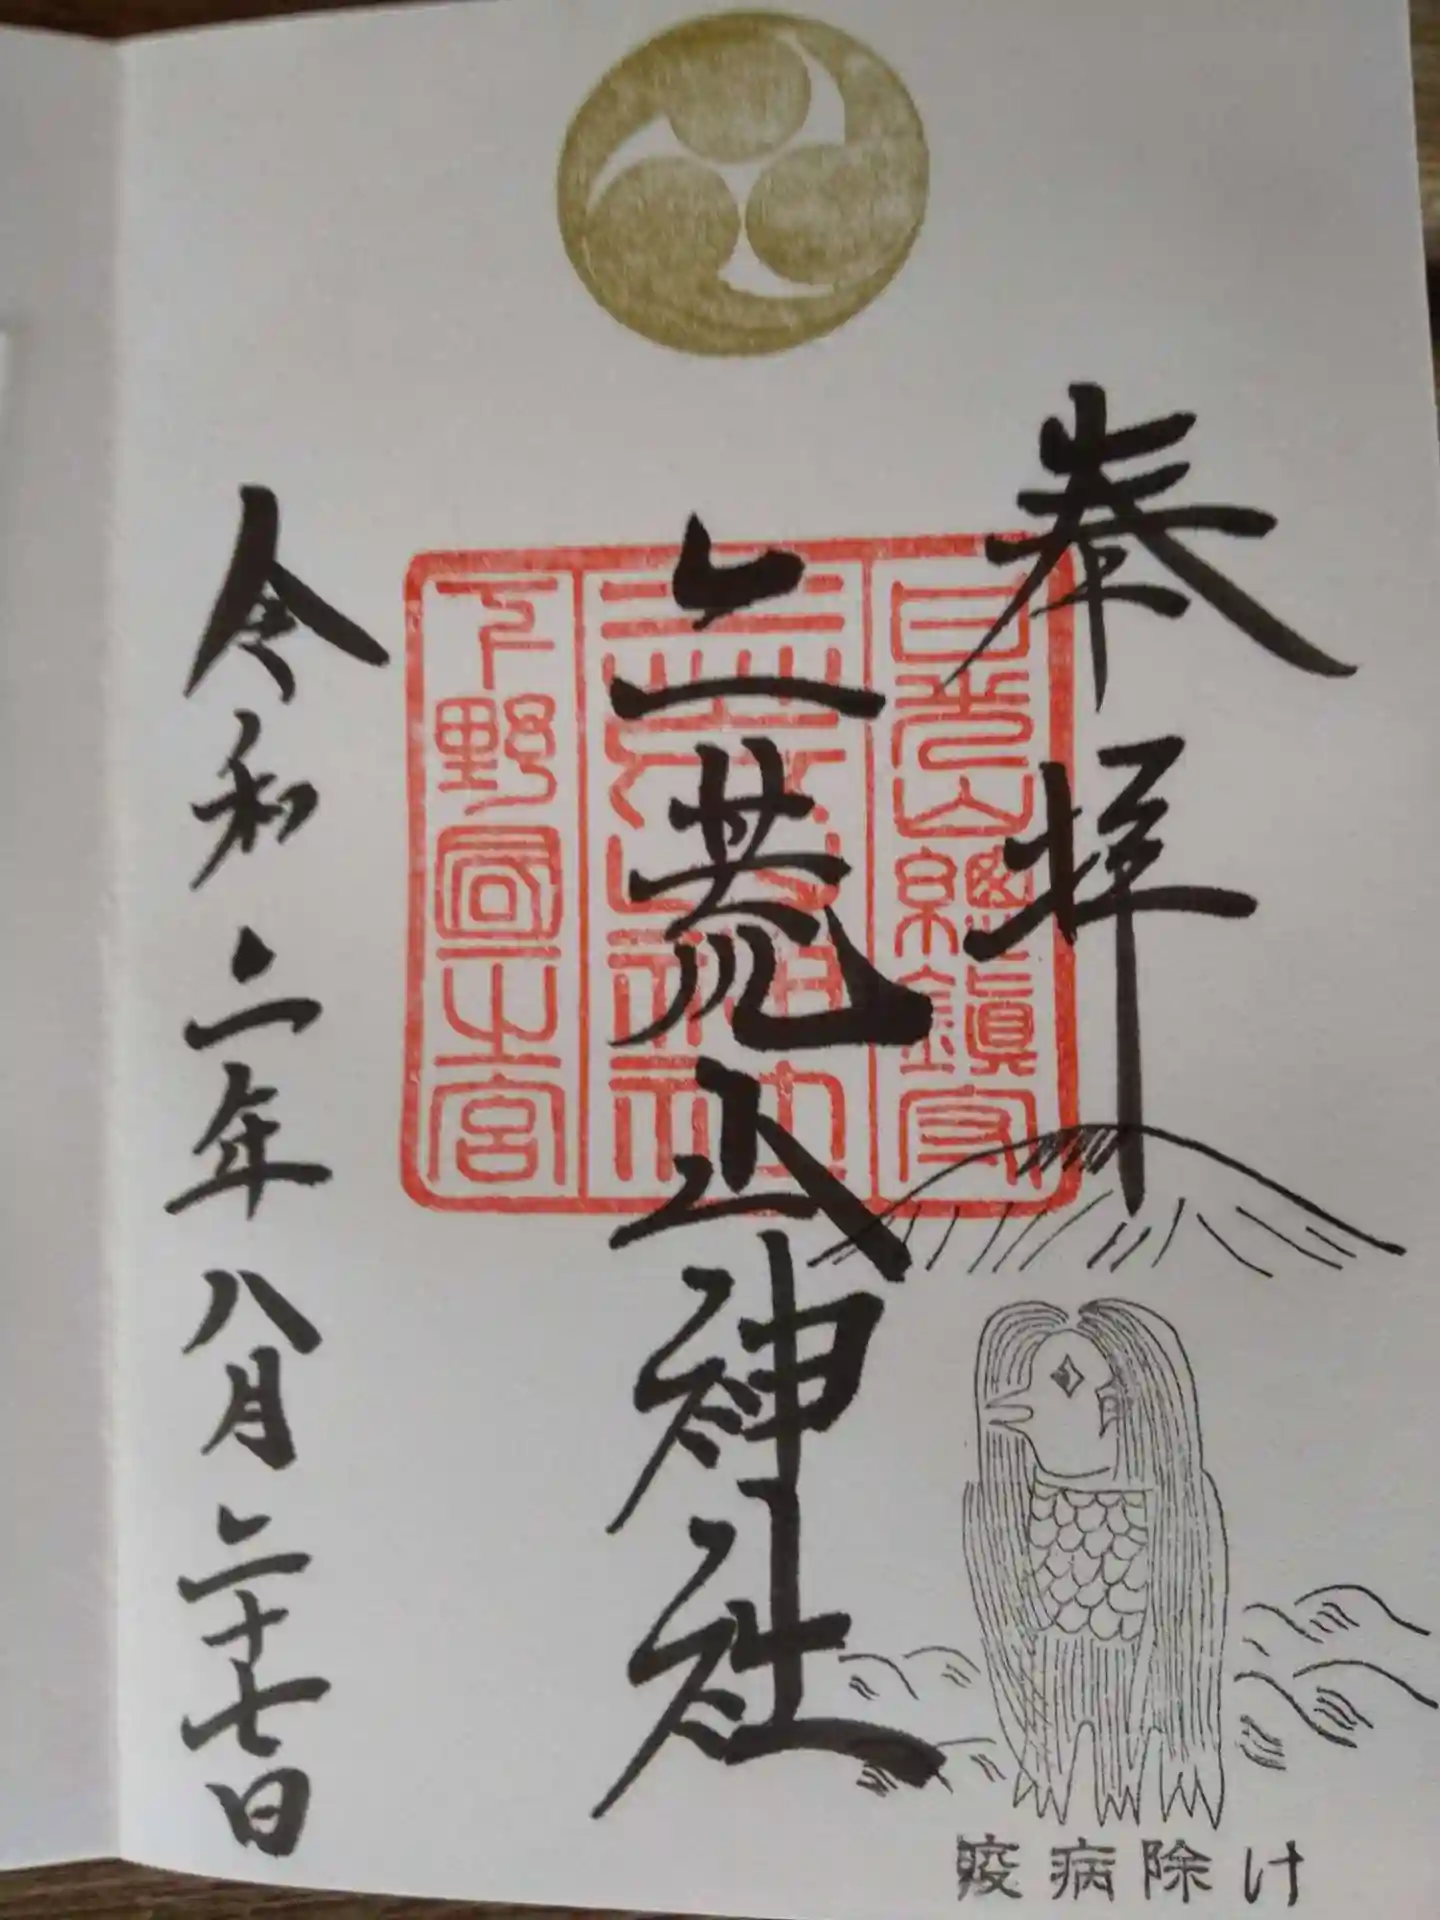 奉拝
日光山總鎮守
二荒山神社
二荒山神社
下野國一之宮
令和二年八月二十七日
疫病除け